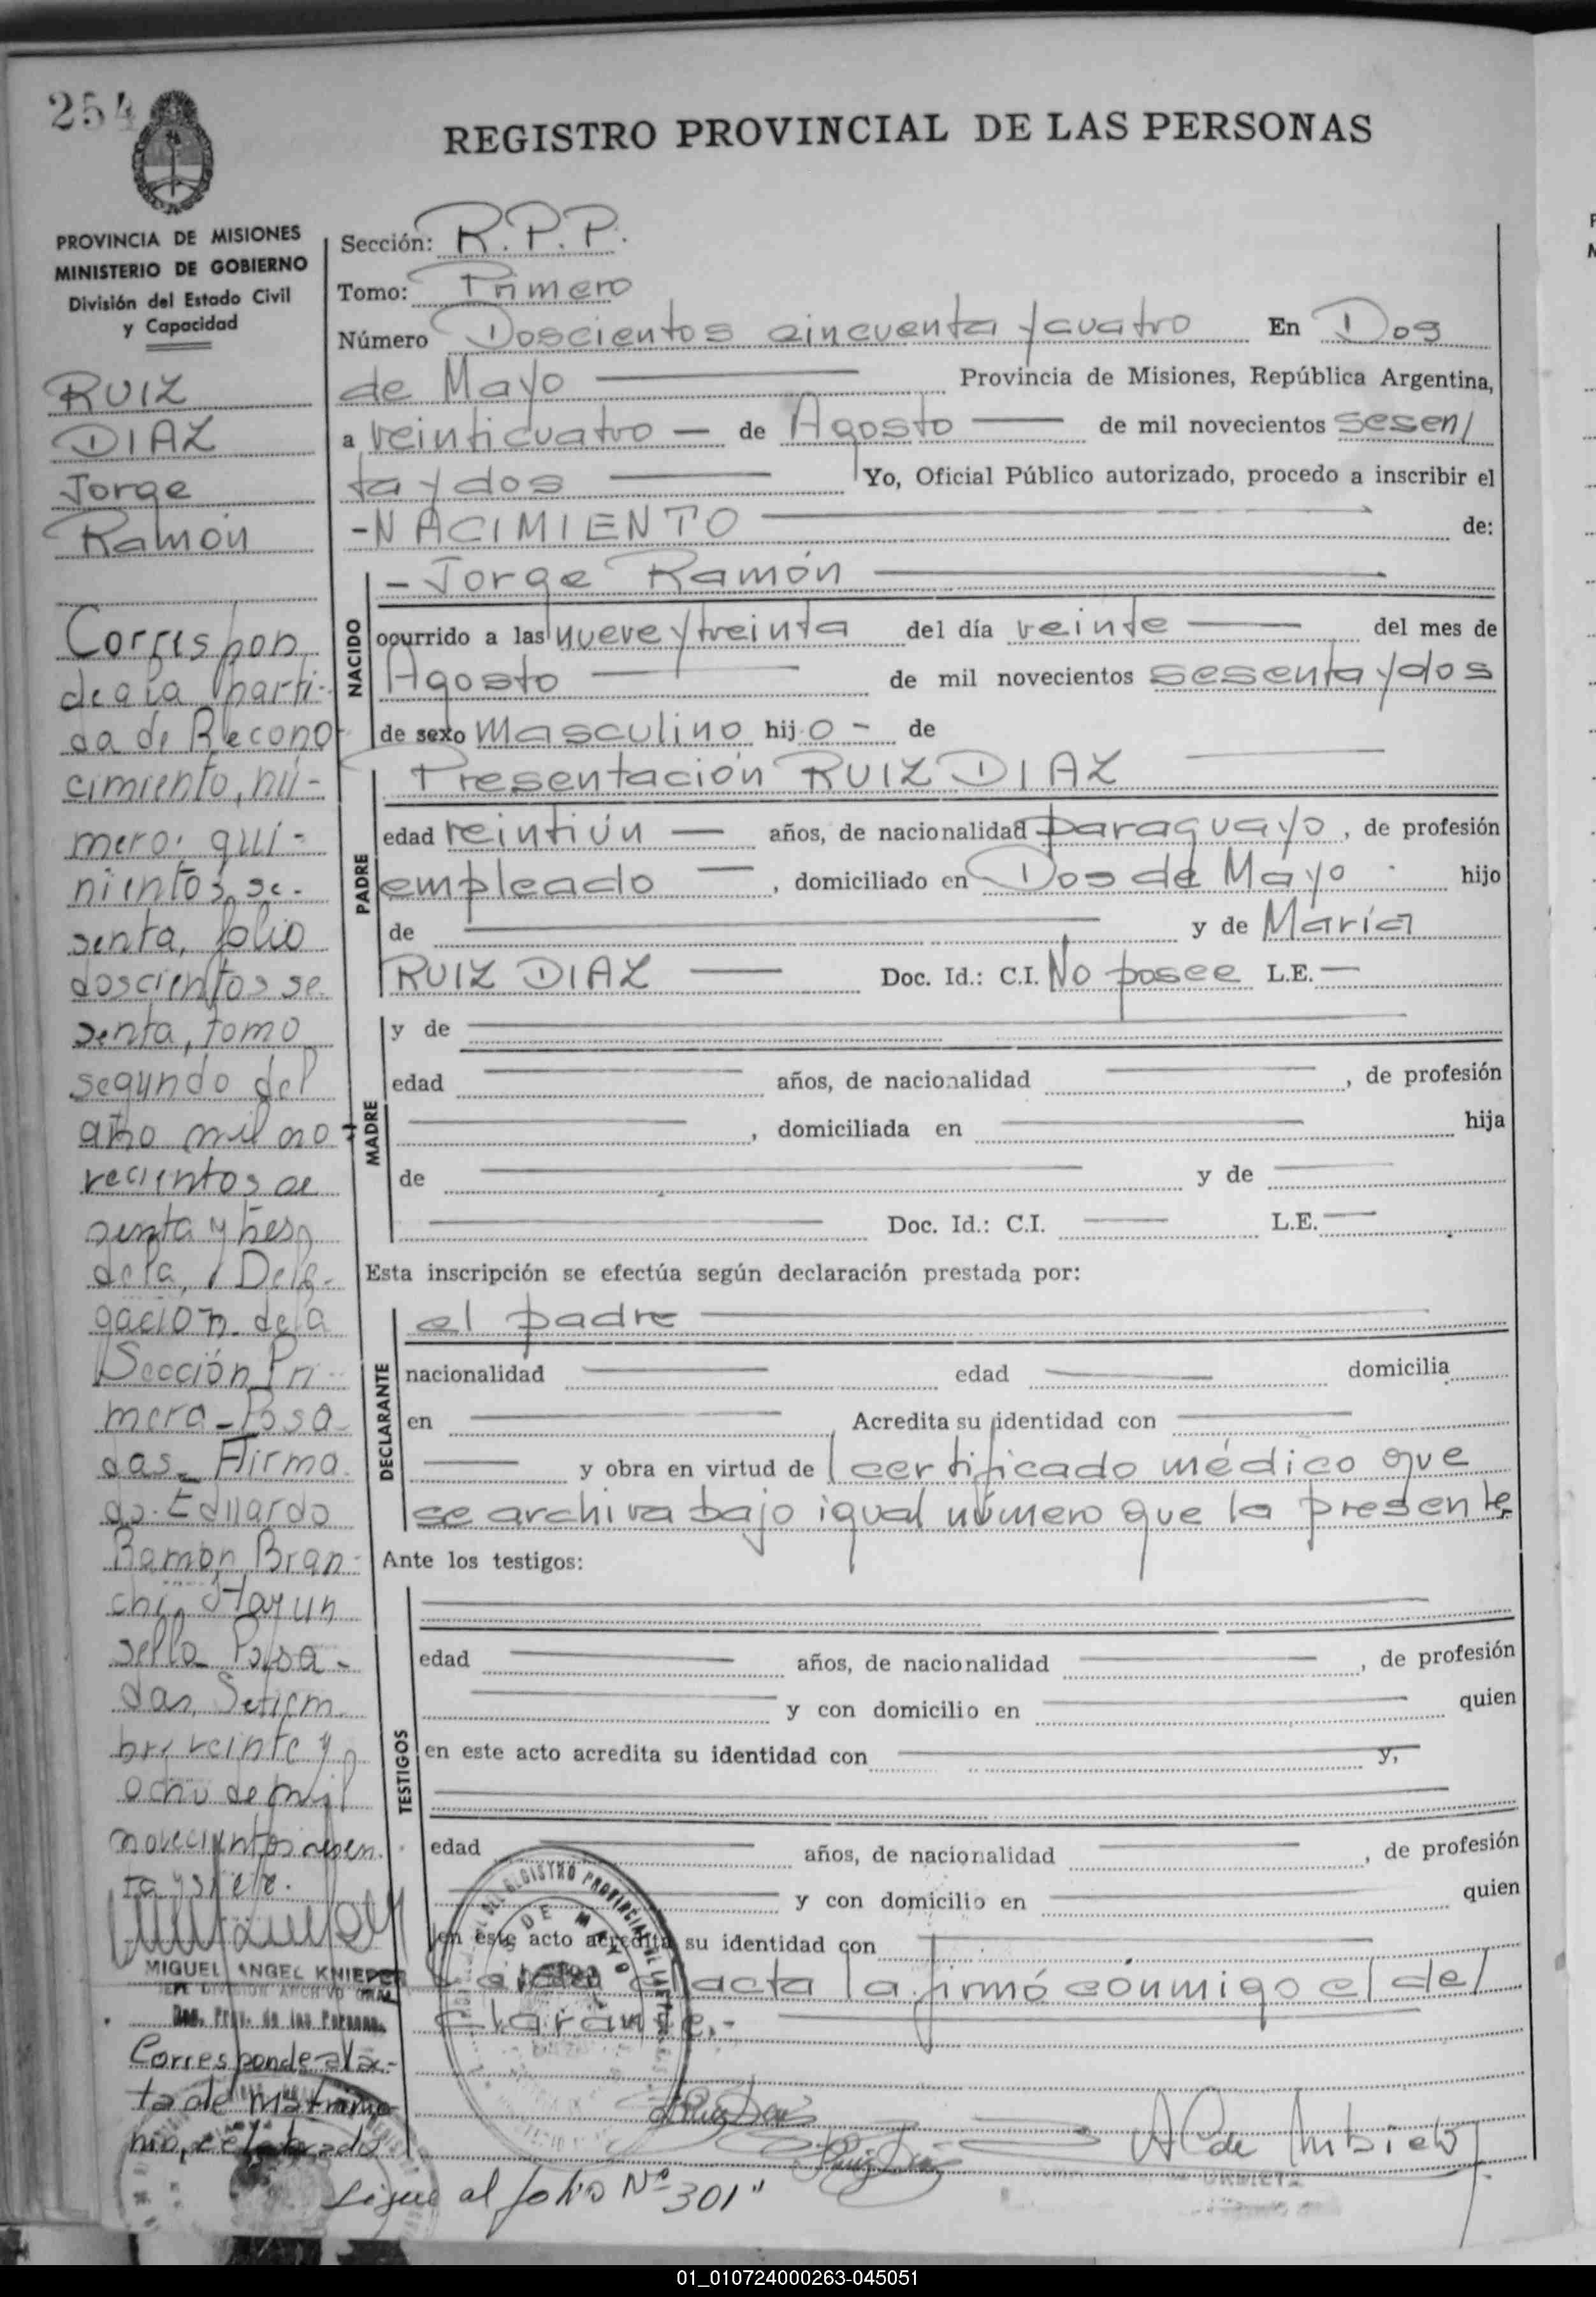 254
REGISTRO PROVINCIAL DE LAS PERSONAS
PROVINCIA DE MISIONES
MINISTERIO DE GOBIERNO
División del Estado Civil
y Capacidad
RUIZ
DIAZ
Jorge
Ramón
Correspon
de a la parti-
da de Recono
cimiento, nú-
mero: qui-
nientos se-
senta, folio
doscientos se
senta, tomo
segundo del
año mil no
vecientos se
senta y tres
de la Dele-
gación de la
Sección Pri-
mera - Posa
das. Firma
do. Eduardo
Ramón Bran-
chi. Hay un
sello Posa-
das, Setiem
bre veinte y
ocho de mil
novecientos sesen
ta y siete.
MIGUEL ANGEL KNIEPER
JEFE DIVISION ARCHIVO GRAL
Reg. Prov. de las Personas
Corresponde al ac-
ta de matrimo
nio, celebrado
Sigue al folio Nº 301"
Sección: R.P.P.
Tomo: Primero
Número Doscientos cincuenta y cuatro En Dos
de Mayo Provincia de Misiones, República Argentina,
a veinticuatro — de Agosto — de mil novecientos sesen/
ta y dos Yo, Oficial Público autorizado, procedo a inscribir el
-NACIMIENTO de:
NACIDO
- Jorge Ramón
ocurrido a las nueve y treinta del día veinte — del mes de
Agosto de mil novecientos sesenta y dos
de sexo masculino hijo - de
PADRE
Presentación RUIZ DIAZ
edad veintiún — años, de nacionalidad paraguayo, de profesión
empleado —, domiciliado en Dos de Mayo hijo
de y de María
RUIZ DIAZ — Doc. Id.: C.I. No posee L.E. —
MADRE
y de
edad años, de nacionalidad , de profesión
, domiciliada en hija
de y de
Doc. Id.: C.I. — L.E. —
Esta inscripción se efectúa según declaración prestada por:
DECLARANTE
el padre
nacionalidad edad domicilia
en Acredita su identidad con
y obra en virtud de l certificado médico que
se archiva bajo igual número que la presente
Ante los testigos:
TESTIGOS
edad años, de nacionalidad , de profesión
y con domicilio en quien
en este acto acredita su identidad con y,
edad años, de nacionalidad , de profesión
y con domicilio en quien
en este acto acredita su identidad con
Leida el acta la firmó conmigo el de/
clarante.-
REGISTRO PROVINCIAL DE LAS
DE MAYO
URBIETA
01_010724000263-045051